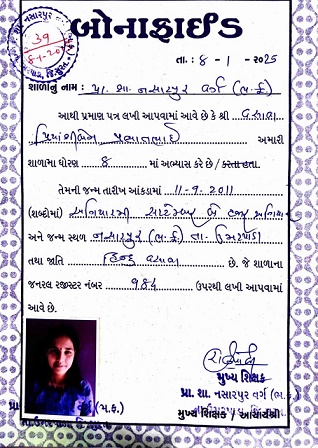 બોનાફાઈડ
તા. : ૮ - ૧ - ૨૦૨૫
શાળાનું નામ : પ્રા. શા. નસારપુર વર્ગ (ભ.ફ.)
આથી પ્રમાણ પત્ર લખી આપવામાં આવે છે કે શ્રી વસાવા
અમારી
શાળામા ધોરણ ૮ માં અભ્યાસ કરે છે / કરતા હતા.
તેમની જન્મ તારીખ આંકડામાં ૧૧-૯-૨૦૧૧
(શબ્દોમાં) અગિયારમી સપ્ટેમ્બર બે હજાર અગિયાર
અને જન્મ સ્થળ નસારપુર (ભ.ફ.) તા. ઉમરપાડા
તથા જાતિ હિન્દુ વસાવા છે. જે શાળાના
જનરલ રજીસ્ટર નંબર ૧૯૮૪ ઉપરથી લખી આપવામાં
આવે છે.
મુખ્ય શિક્ષક
પ્રા. શા. નસારપુર વર્ગ (ભ.ફ.)
મુખ્ય શિક્ષક / આચાર્યશ્રી